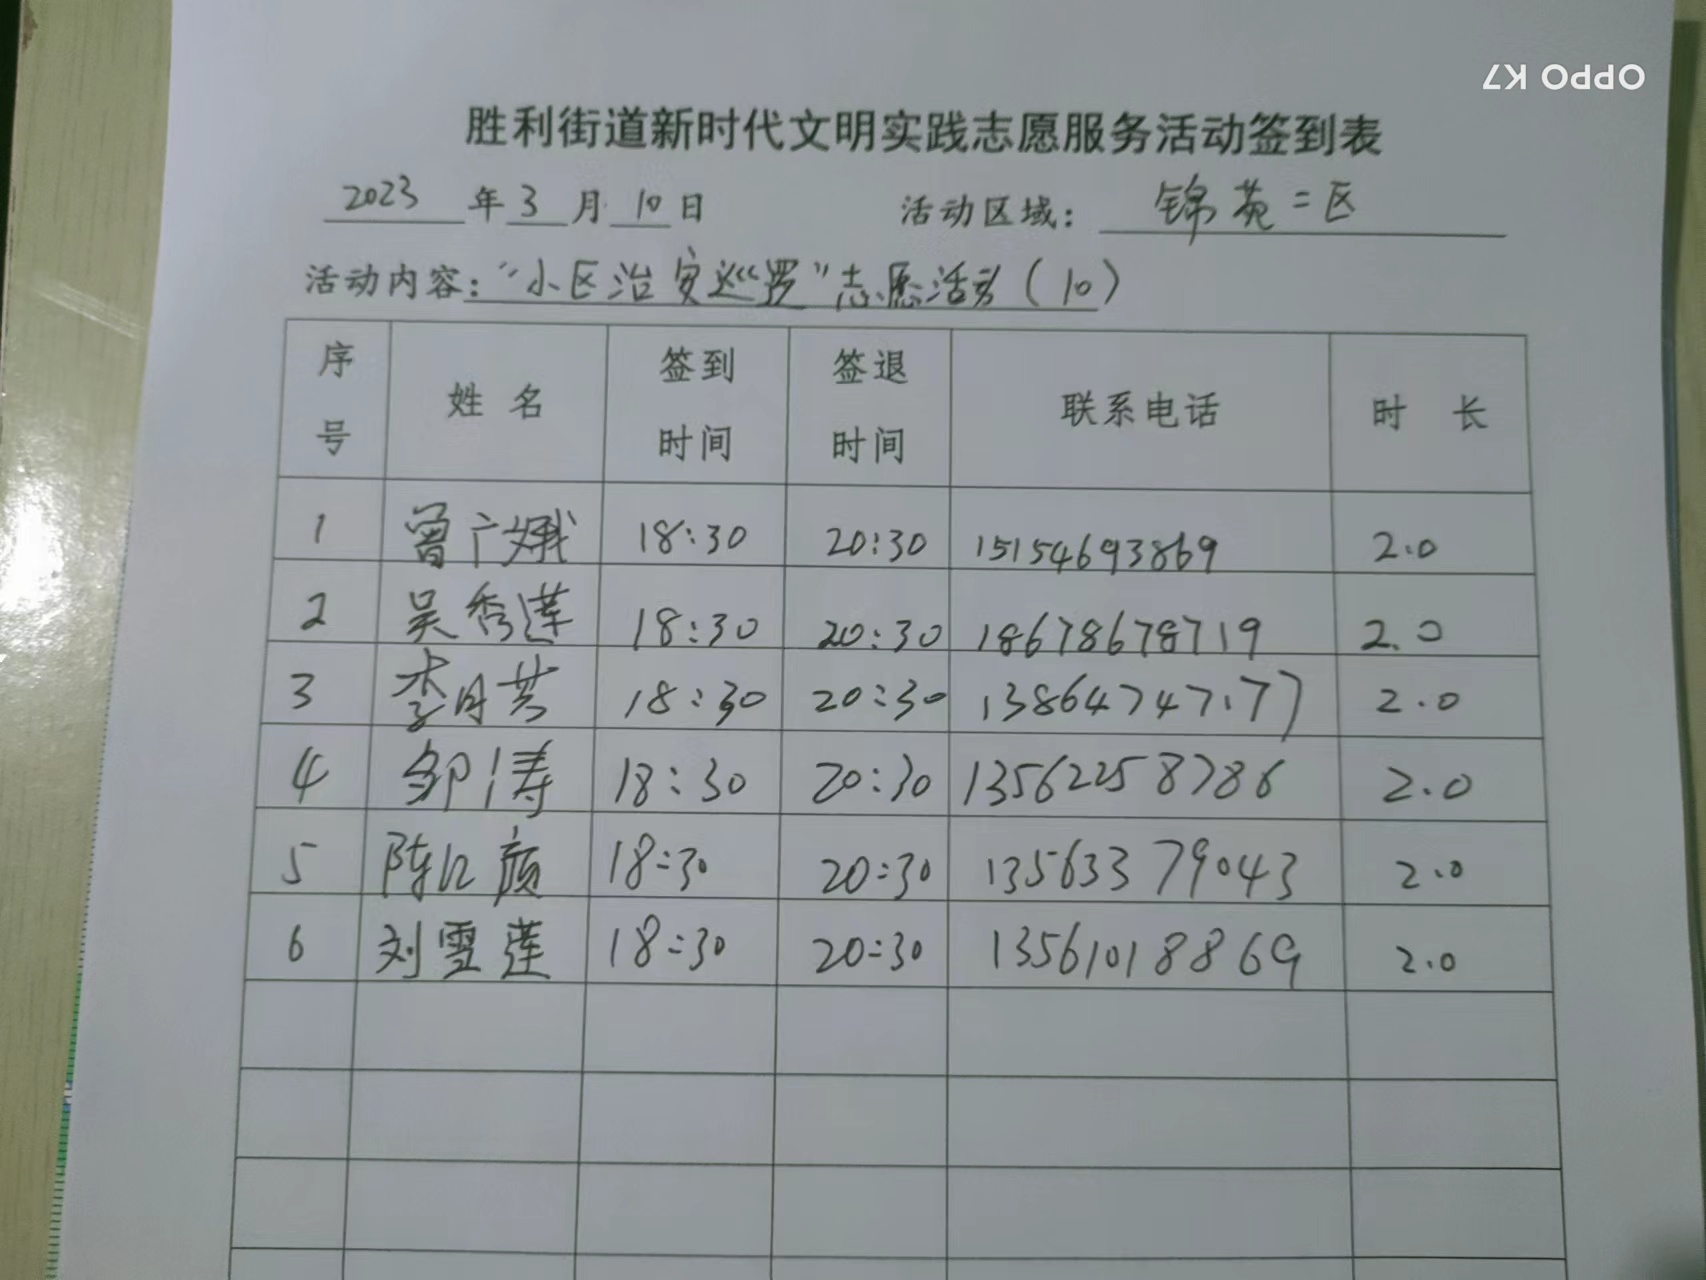 OPPO K7
胜利街道新时代文明实践志愿服务活动签到表
2023 年 3 月 10 日 活动区域: 锦苑二区
活动内容: “小区治安巡逻”志愿活动(10)
序号 姓名 签到时间 签退时间 联系电话 时长
1 曾广娥 18:30 20:30 15154693869 2.0
2 吴秀莲 18:30 20:30 18678678719 2.0
3 李月芳 18:30 20:30 13864747177 2.0
4 邹涛 18:30 20:30 13562258786 2.0
5 陈 18:30 20:30 13563379043 2.0
6 刘雪莲 18:30 20:30 13561018869 2.0